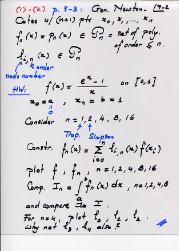 (1)-(2) p. 7-8: Gen. Newton-
Cotes w/ (n+1) pts x_0, x_1, ... x_n
f_n(x) ≡ p_n(x) ∈ P_n = set of poly. of order ≤ n.
l_{i,n}(x) ∈ P_n
order
node number
HW: f(x) = (e^x - 1)/x on [0,1]
x_0 = a = 0, x_n = b = 1
Consider n = 1, 2, 4, 8, 16
Trap. Simpson
Constr. f_n(x) = Σ_{i=0}^{n} l_{i,n}(x) f(x_i)
plot f, f_n, n = 1, 2, 4, 8, 16
Comp. I_n = ∫_a^b f_n(x) dx, n = 1, 2, 4, 8
and compare to I.
For n=4, plot l_0, l_1, l_2.
Why not l_3, l_4 also?